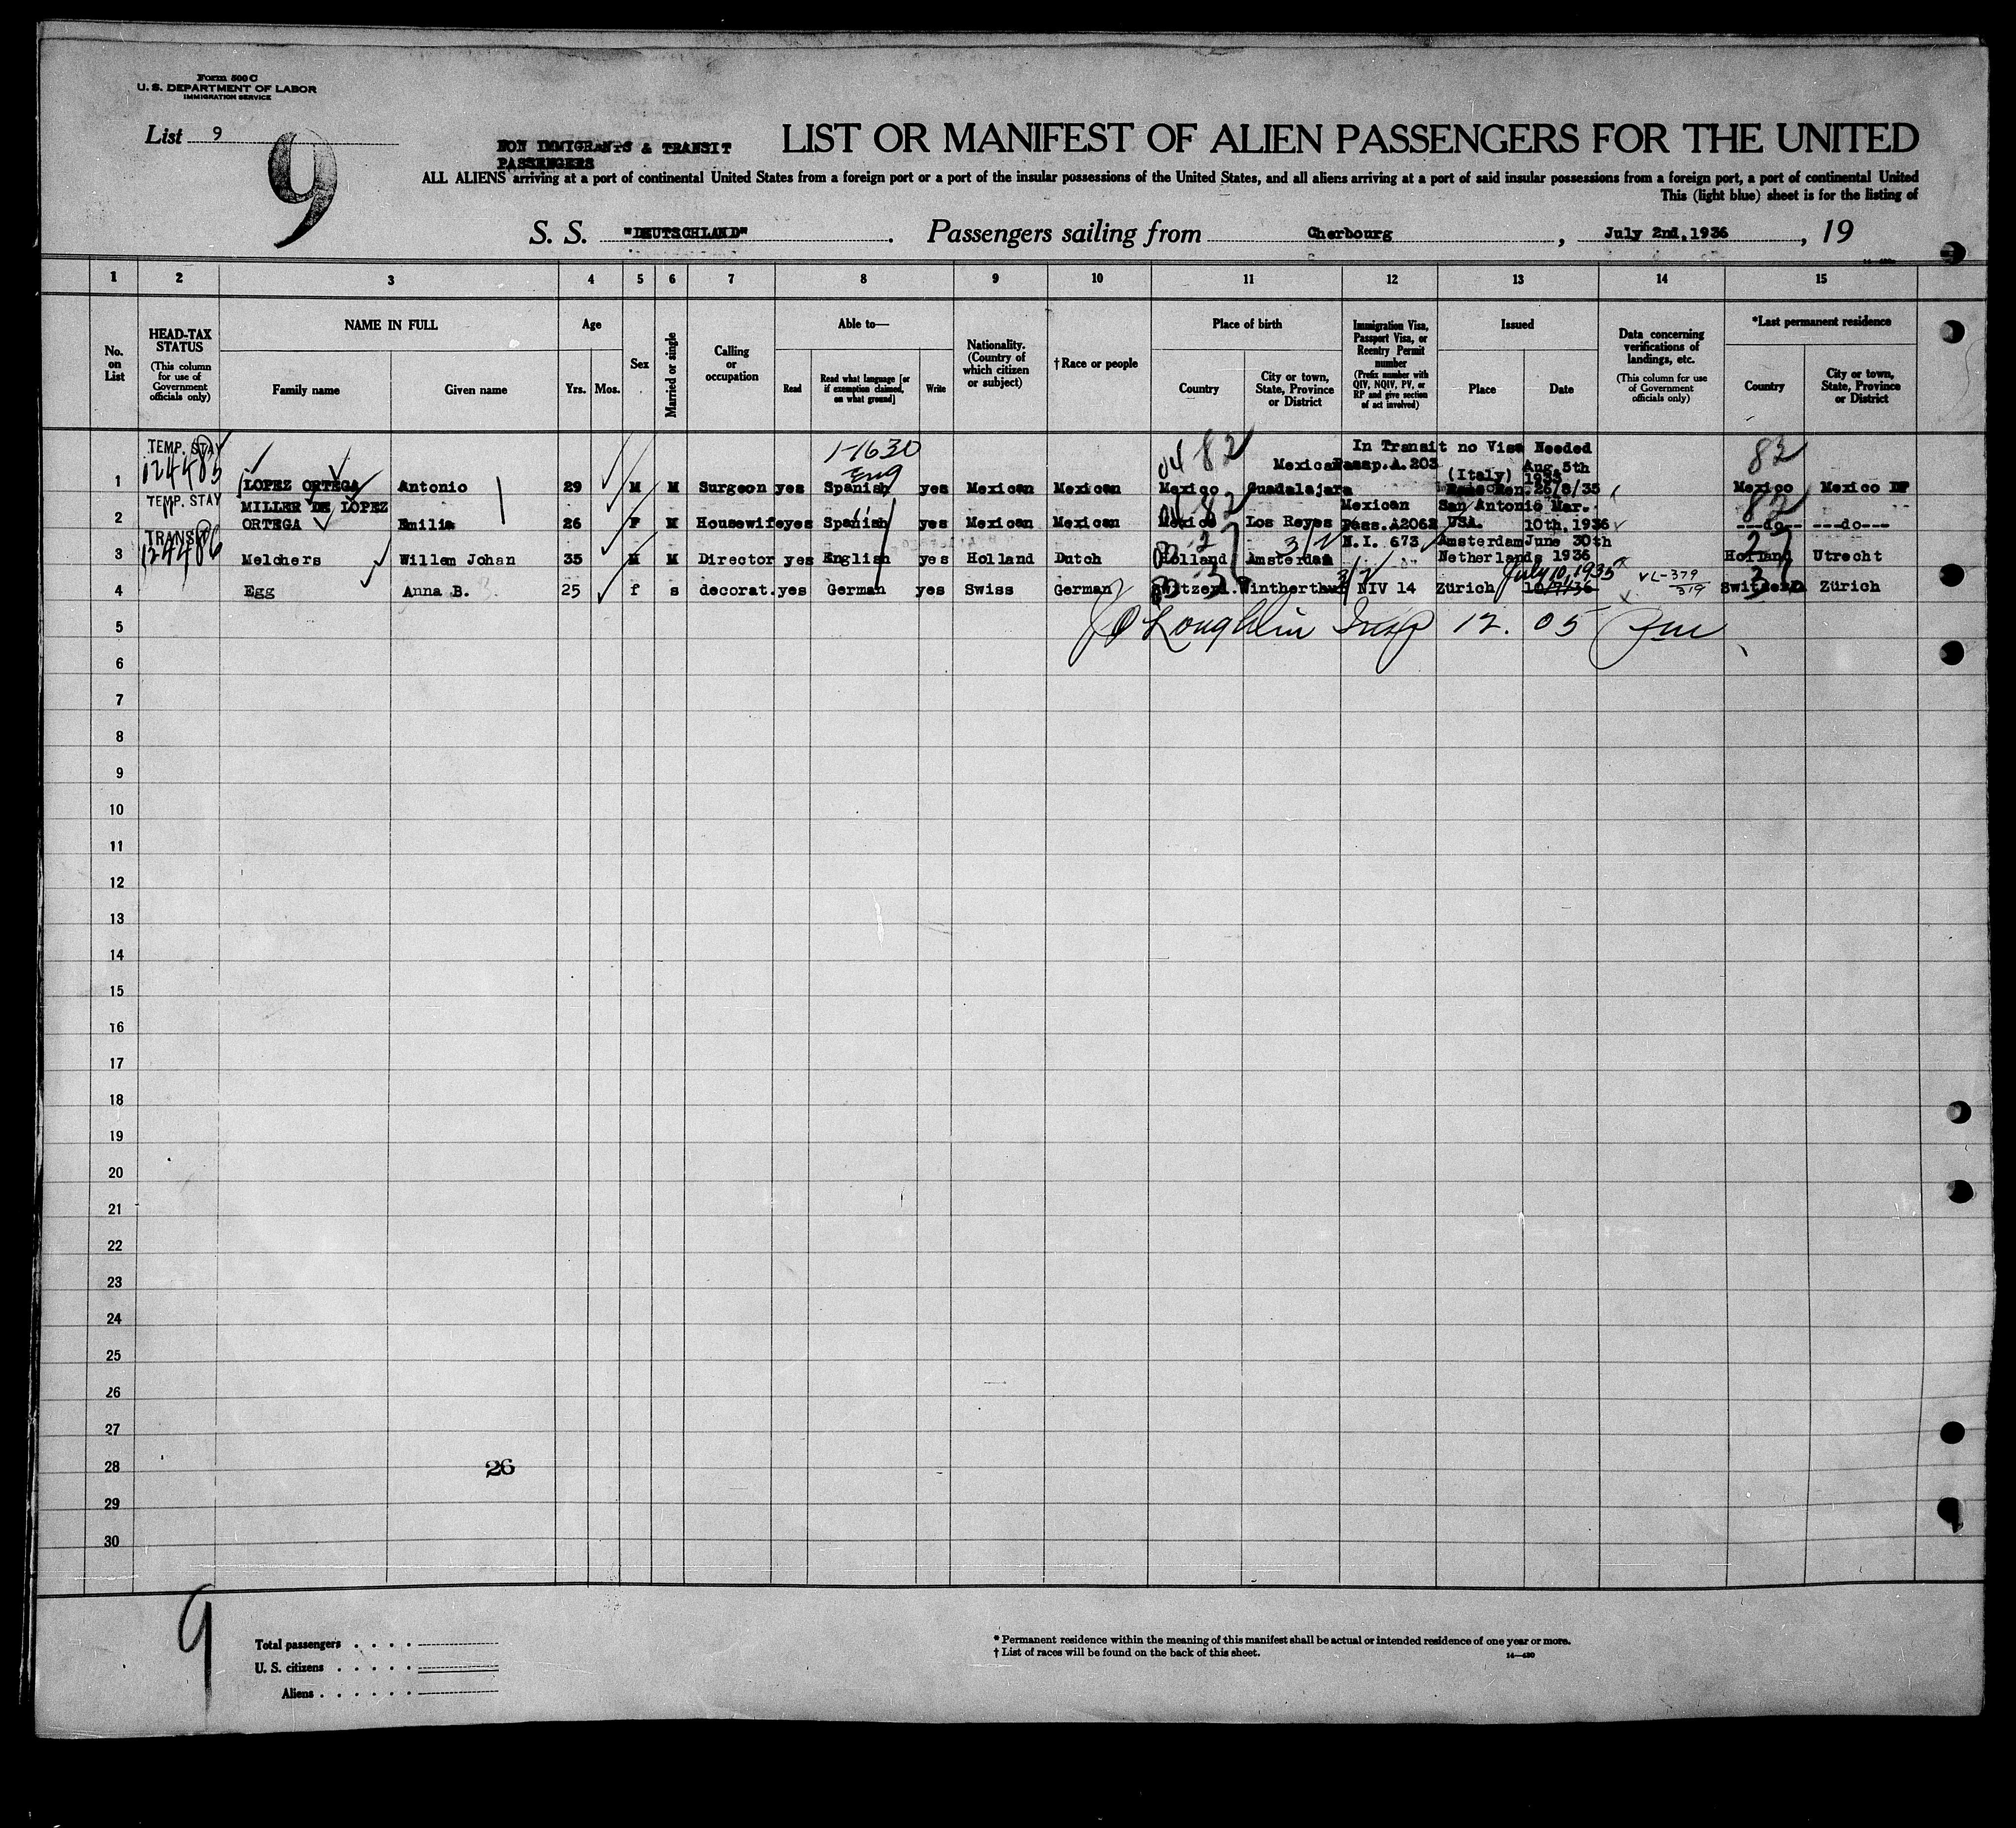 Form 500 C
U. S. DEPARTMENT OF LABOR
IMMIGRATION SERVICE
List 9
9
NON IMMIGRANTS & TRANSIT
PASSENGERS
LIST OR MANIFEST OF ALIEN PASSENGERS FOR THE UNITED
ALL ALIENS arriving at a port of continental United States from a foreign port or a port of the insular possessions of the United States, and all aliens arriving at a port of said insular possessions from a foreign port, a port of continental United
This (light blue) sheet is for the listing of
S. S. "DEUTSCHLAND". Passengers sailing from Cherbourg, July 2nd, 1936, 19
1 2 3 4 5 6 7 8 9 10 11 12 13 14 15
No. on List
HEAD-TAX STATUS
(This column for use of Government officials only)
NAME IN FULL
Family name Given name
Age
Yrs. Mos.
Sex
Married or single
Calling or occupation
Able to—
Read
Read what language [or if exemption claimed, on what ground]
Write
Nationality. (Country of which citizen or subject)
† Race or people
Place of birth
Country
City or town, State, Province or District
Immigration Visa, Passport Visa, or Reentry Permit number
(Prefix number with QIV, NQIV, PV, or RP and give section of act involved)
Issued
Place Date
Data concerning verifications of landings, etc.
(This column for use of Government officials only)
*Last permanent residence
Country
City or town, State, Province or District
TEMP. STAY 1-1630 04 82 In Transit no Visa Needed 82
124485 Eng Mexican Passp. A. 203 (Italy) Aug. 5th 1935
1 LOPEZ ORTEGA Antonio 29 M M Surgeon yes Spanish yes Mexican Mexican Mexico Guadalajara Ren. 26/8/35 Mexico Mexico DF
TEMP. STAY MILLER DE LOPEZ 04 82 Mexican San Antonio Mar. 82
2 ORTEGA Emilia 26 F M Housewife yes Spanish yes Mexican Mexican Mexico Los Reyes Pass. A2062 USA. 10th. 1936 ---do-- ---do---
TRANSIT 2 3/ N.I. 673 Amsterdam June 30th 2
124486
3 Melchers Willem Johan 35 M M Director yes English yes Holland Dutch Holland Amsterdam Netherlands 1936 Holland Utrecht
July 10, 1935
4 Egg Anna B. 25 f s decorat. yes German yes Swiss German Switzerl. Wintherthur NIV 14 Zürich 10/7/36 VL-379 319 Switzerld Zürich
5 J O'Loughlin Insp 12. 05 Pm
6
7
8
9
10
11
12
13
14
15
16
17
18
19
20
21
22
23
24
25
26
27
28 26
29
30
9
Total passengers . . . .
U. S. citizens . . . . .
Aliens . . . . . .
* Permanent residence within the meaning of this manifest shall be actual or intended residence of one year or more.
† List of races will be found on the back of this sheet.
14—430